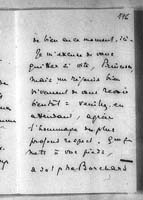 de bien en ce moment, ici.
Je m'excuse de vous
quitter si vite, Princesse,
mais me réjouis bien
vivement de vous revoir
bientôt. Veuillez, en
attendant, agréer
l'hommage du plus
profond respect, que je
mets à vos pieds,
Adolphe Borchard